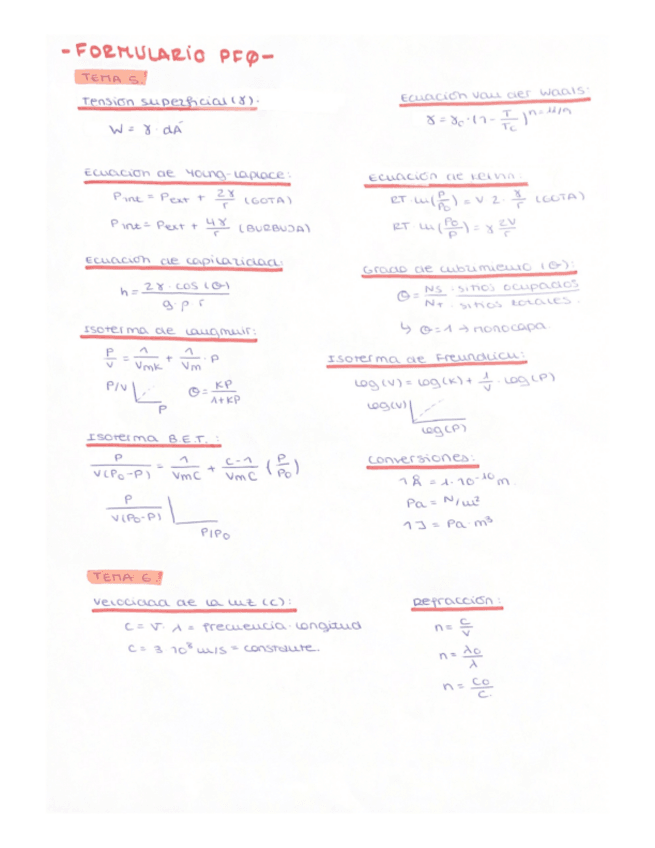 -FORMULARIO PFQ-
TEMA 5.
Tensión superficial (γ).
W = γ · dA
Ecuación Van der Waals:
γ = γc · (1 - T/Tc)^n = 11/9
Ecuación de Young-Laplace:
Pint = Pext + 2γ/r (GOTA)
Pint = Pext + 4γ/r (BURBUJA)
Ecuación de Kelvin.
RT · ln(P/P0) = V 2 · γ/r (GOTA)
RT · ln(P0/P) = γ 2V/r
Ecuación de capilaridad:
h = 2γ · cos(θ) / g · ρ · r
Grado de cubrimiento (θ):
θ = Ns · sitios ocupados / NT · sitios totales.
↳ θ = 1 → monocapa.
Isoterma de Langmuir:
P/V = 1/Vmk + 1/Vm · P
P/V
P
θ = KP/1+KP
Isoterma de Freundlich:
log(V) = log(K) + 1/V · log(P)
log(V)
log(P)
Isoterma B.E.T. :
P/V(P0-P) = 1/VmC + C-1/VmC (P/P0)
P/V(P0-P)
P/P0
Conversiones:
1 Å = 1·10^-10 m.
Pa = N/m²
1 J = Pa · m³
TEMA 6.
Velocidad de la luz (c):
C = ν · λ = frecuencia · longitud
C = 3 · 10^8 m/s = constante.
Refracción:
n = C/V
n = λ0/λ
n = C0/C.